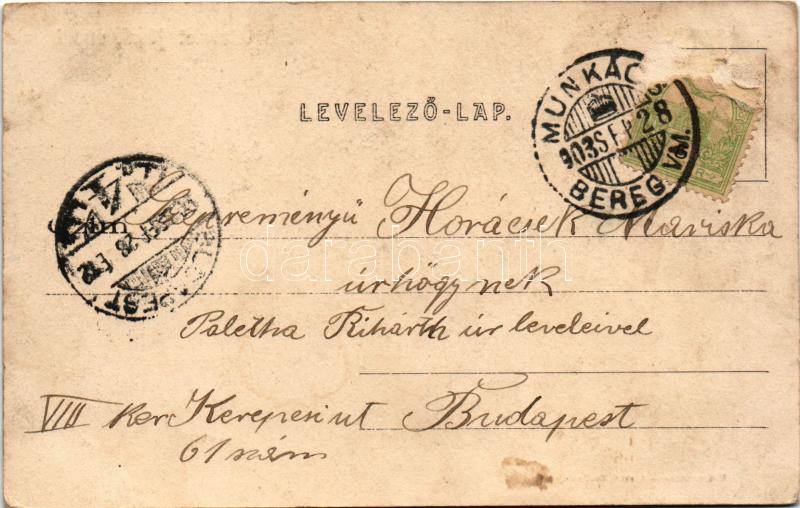 LEVELEZŐ-LAP.
MUNKÁC
903 SEP 28
BEREG VM.
BUDAPEST
Czim Horácsek Mariska
úrhögynek
Paletha Rihárth úr leveleivel
VIII ker Kerepesi ut Budapest
61 szám
darabanth